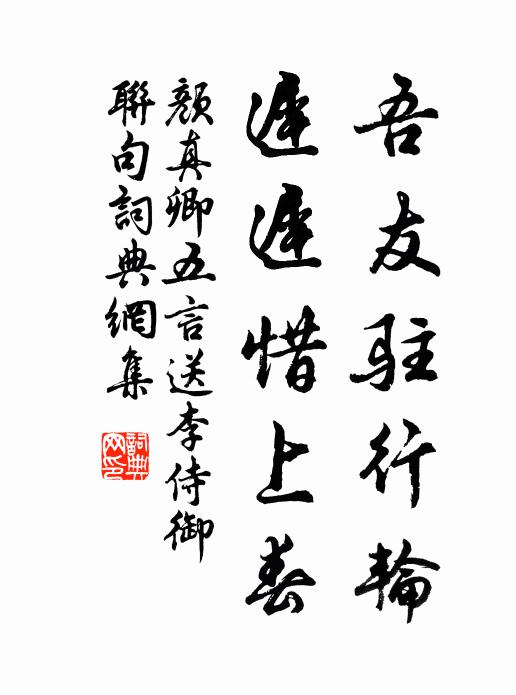 吾友駐行輪
遲遲惜上春
顏真卿五言送李侍御
聯句詞典網集
詞典
网印